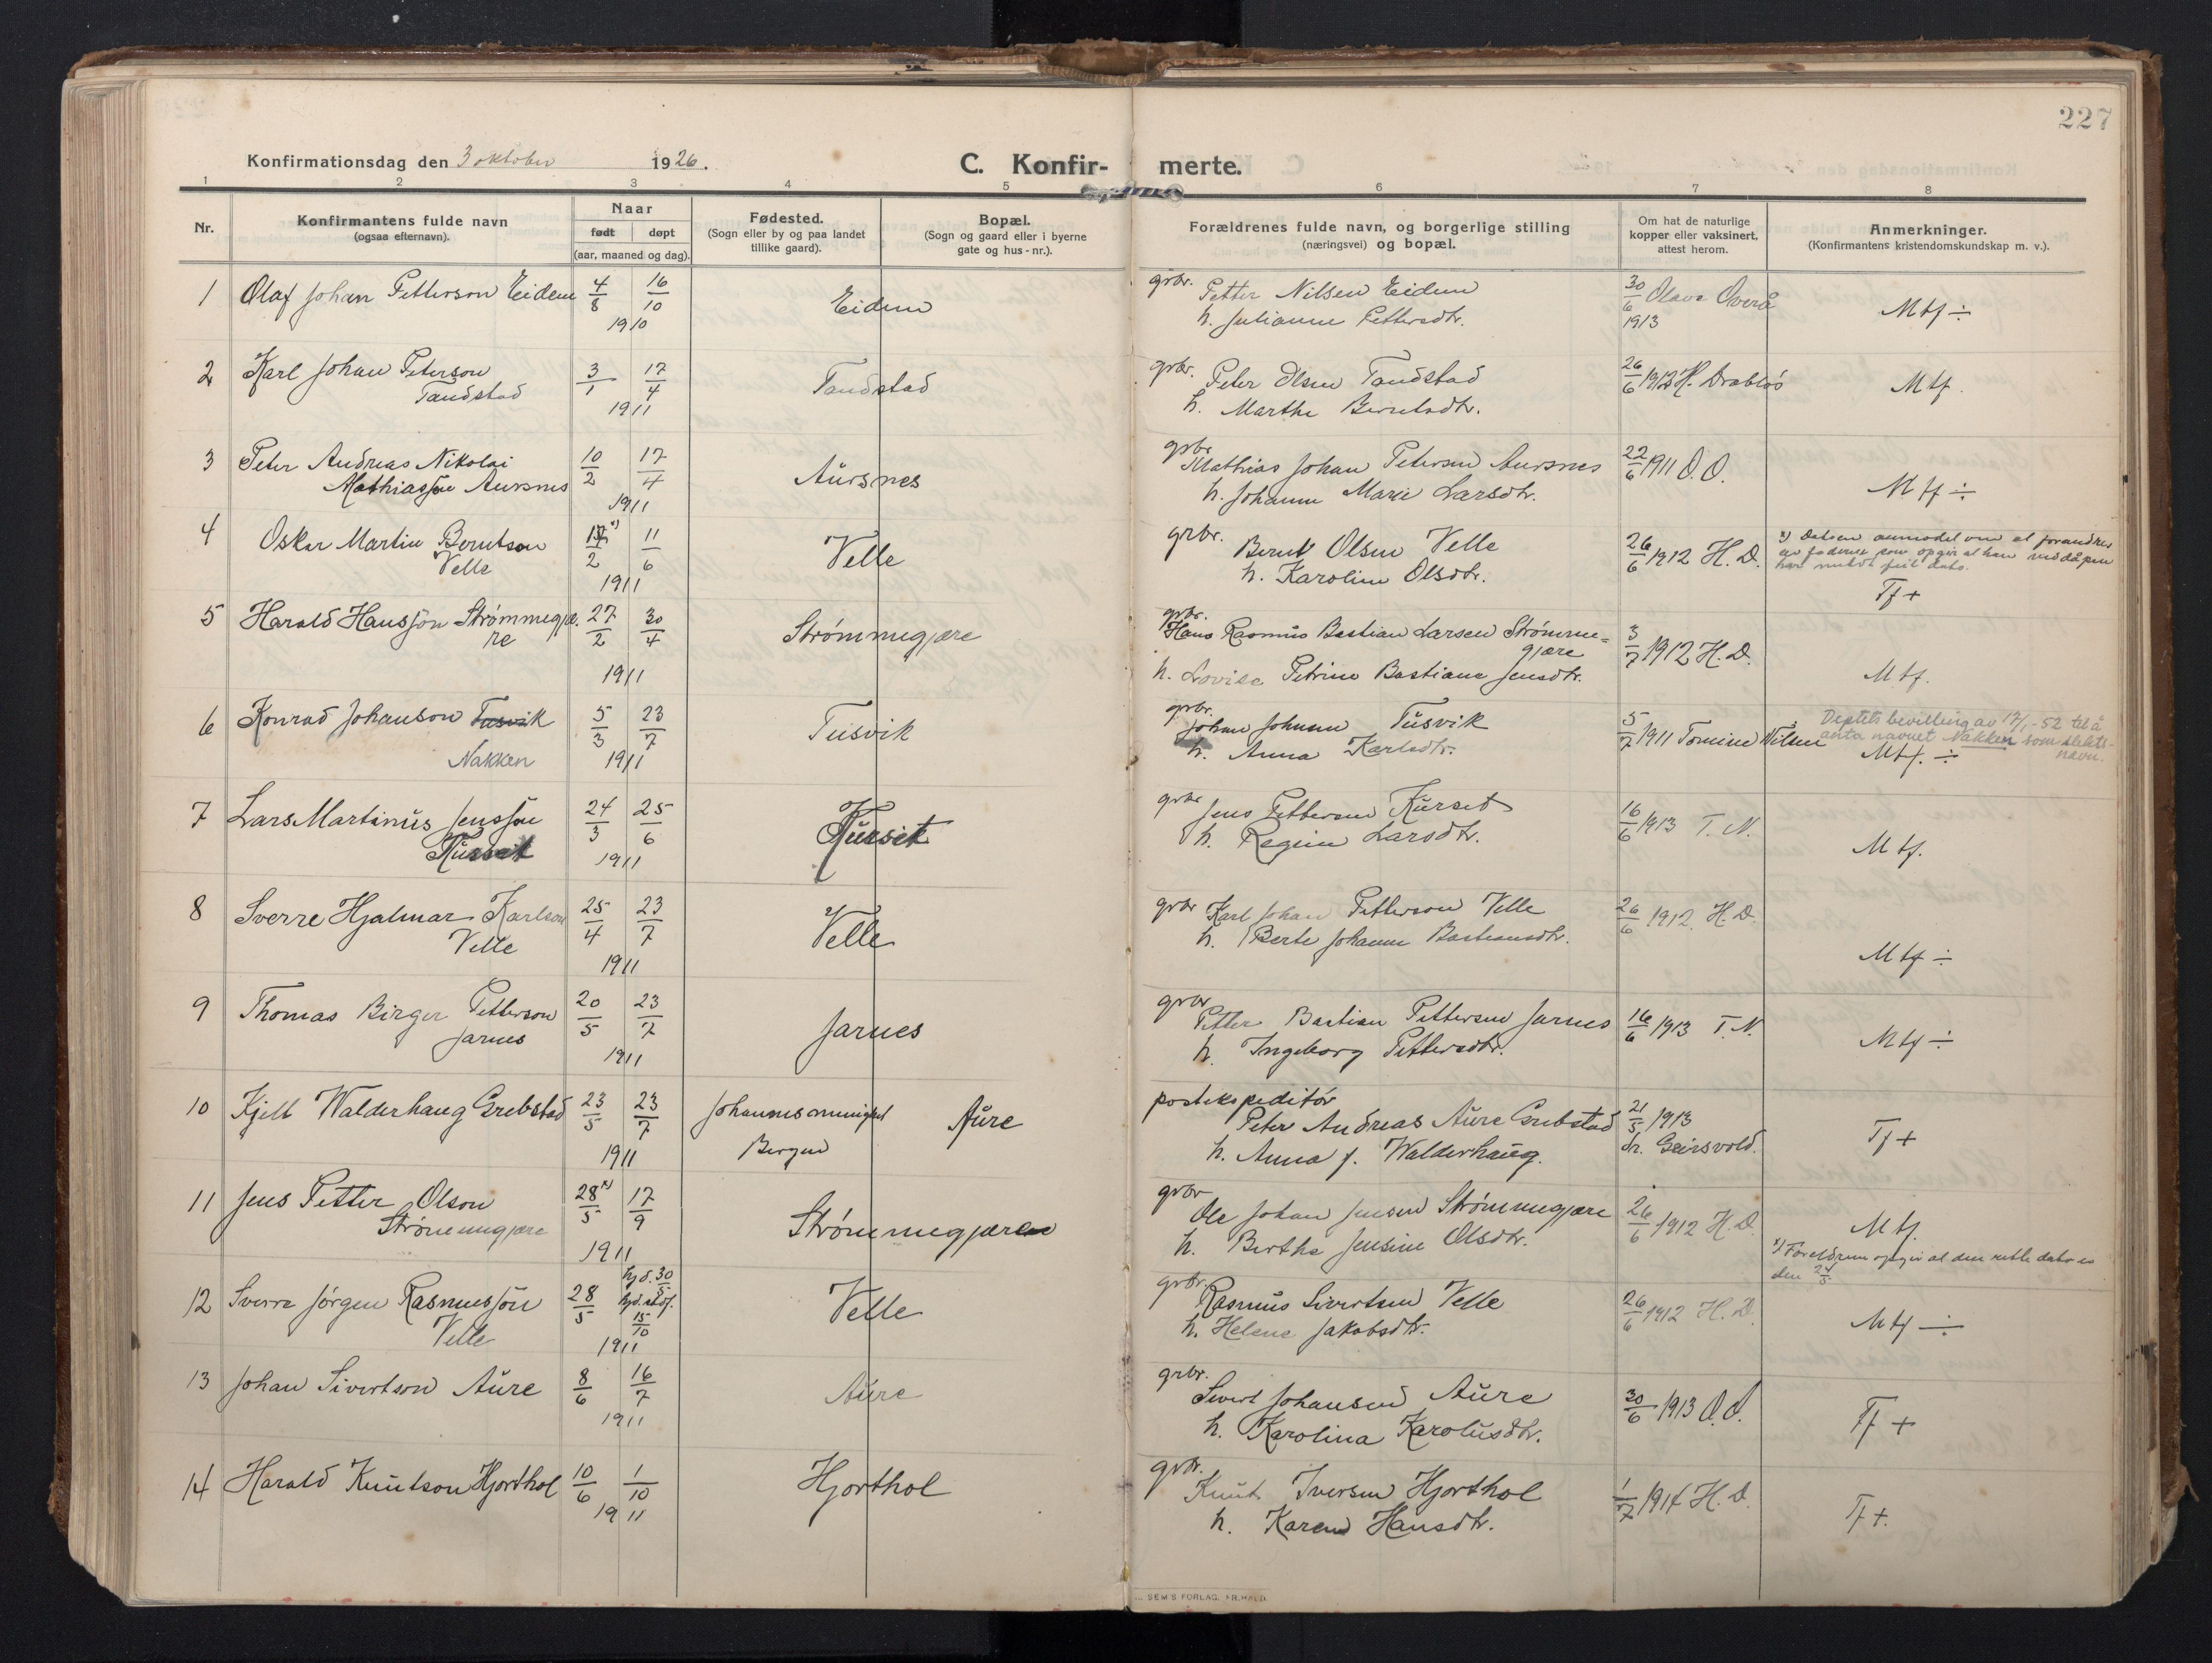 227
Konfirmationsdag den 3 oktober 1926.
C. Konfir- merte.
1 2 3 4 5 6 7 8
Nr.
Konfirmantens fulde navn
(ogsaa efternavn).
Naar
født døpt
(aar, maaned og dag).
Fødested.
(Sogn eller by og paa landet
tillike gaard).
Bopæl.
(Sogn og gaard eller i byerne
gate og hus - nr.).
Forældrenes fulde navn, og borgerlige stilling
(næringsvei) og bopæl.
Om hat de naturlige
kopper eller vaksinert,
attest herom.
Anmerkninger.
(Konfirmantens kristendomskundskap m. v.).
1 Olaf Johan Petterson Eidem 4/8 16/10 1910 Eidem
grbr. Petter Nilsen Eidem
h. Julianne Pettersdtr.
30/6 1913 Olava Overå
Mtf ÷
2 Karl Johan Peterson
Tandstad
3/1 17/4 1911
Tandstad
grbr. Peter Olsen Tandstad
h. Marthe Berntsdtr.
26/6 1912 H. Drabløs
Mtf.
3 Peter Andreas Nikolai
Mathiasson Aursnes
10/2 17/4 1911
Aursnes
grbr. Mathias Johan Petersen Aursnes
h. Johanne Marie Larsdtr.
22/6 1911 O.O.
Mtf ÷
4 Oskar Martin Berntson
Velle
2 11/6 1911
Velle
grbr. Bernt Olsen Velle
h. Karoline Olsdtr.
26/6 1912 H. D.
x) Datoen anmodet om at forandres
av faderen som opgir at han ved dåpen
har meldt feil dato.
Tf +
5 Harald Hansson Strømmegjæ-
re
27/2 30/4 1911
Strømmegjære
grbr. Hans Rasmus Bastian Larsen Strømme=
gjære
h. Lovise Petrine Bastiane Jensdtr.
3/7 1912 H. D.
Mtf.
6 Konrad Johanson Tusvik
Nakken
5/3 23/7 1911
Tusvik
grbr. Johan Johnsen Tusvik
h. Anna Karlsdtr.
5/7 1911 Tomine Nilsen
Deptets bevilling av 17/1-52 til å
anta navnet Nakken som slekts-
navn.
Mtf. ÷
7 Lars Martinus Jensson
Kurset
24/3 25/6 1911
Kurset
grbr Jens Pettersen Kurset
h. Regine Larsdtr.
16/6 1913 T. N.
Mtf.
8 Sverre Hjalmar Karlson
Velle
25/4 23/7 1911
Velle
grbr Karl Johan Petterson Velle
h. Berte Johanne Bastiansdtr.
26/6 1912. H. D.
Mtf ÷
9 Thomas Birger Petterson
Jarnes
20/5 23/7 1911
Jarnes
grbr Petter Bastian Pettersen Jarnes
h. Ingeborg Pettersdtr.
16/6 1913 T. N.
Mtf ÷
10 Kjell Walderhaug Grebstad 23/5 23/7 1911
Johannes menighet
Bergen
Aure
postekspeditør
Peter Andreas Aure Grebstad
h. Anna f. Walderhaug.
21/5 1913
dr. Geirsvold.
Tf +
11 Jens Petter Olson
Strømmegjære
28 x)/5 17/9 1911
Strømmegjære
grbr Ole Johan Jensen Strømmegjære
h. Berthe Jensine Olsdtr.
26/6 1912 H. D.
Mtf.
x) Foreldrene opgir at den rette dato er
den 24/5
12 Sverre Jørgen Rasmusson
Velle
28/5 hjd. 30/5
hjd. stdf.
15/10
1911
Velle
grbr. Rasmus Sivertsen Velle
h. Helene Jakobsdtr.
26/6 1912 H. D.
Mtf ÷
13 Johan Sivertson Aure 8/6 16/7 1911
Aure
grbr. Sivert Johansen Aure
h. Karolina Karolusdtr.
30/6 1913 O.O.
Tf +
14 Harald Knutson Hjorthol 10/6 1/10 1911
Hjorthol
grbr. Knut Iversen Hjorthol
h. Karen Hansdtr.
1/7 1914 H. D.
Tf +.
SEM'S FORLAG, FR.HALD.